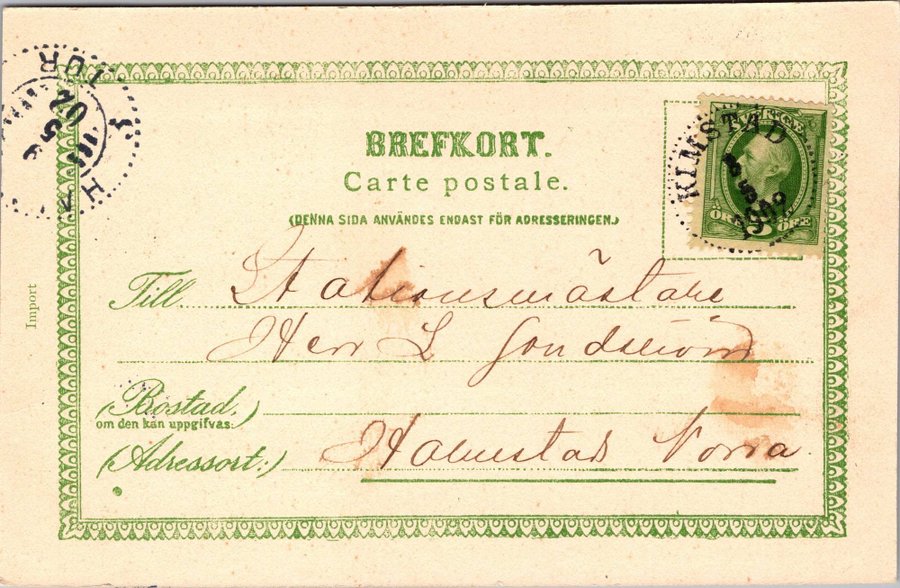 BREFKORT.
Carte postale.
(DENNA SIDA ANVÄNDES ENDAST FÖR ADRESSERINGEN.)
KIMSTAD
1902
SVERIGE
ÖRE 5 ÖRE
TUR
02
Import
Till Stationsmästare
Herr L
(Bostad,)
om den kan uppgifvas:
(Adressort:) Halmstad Norra